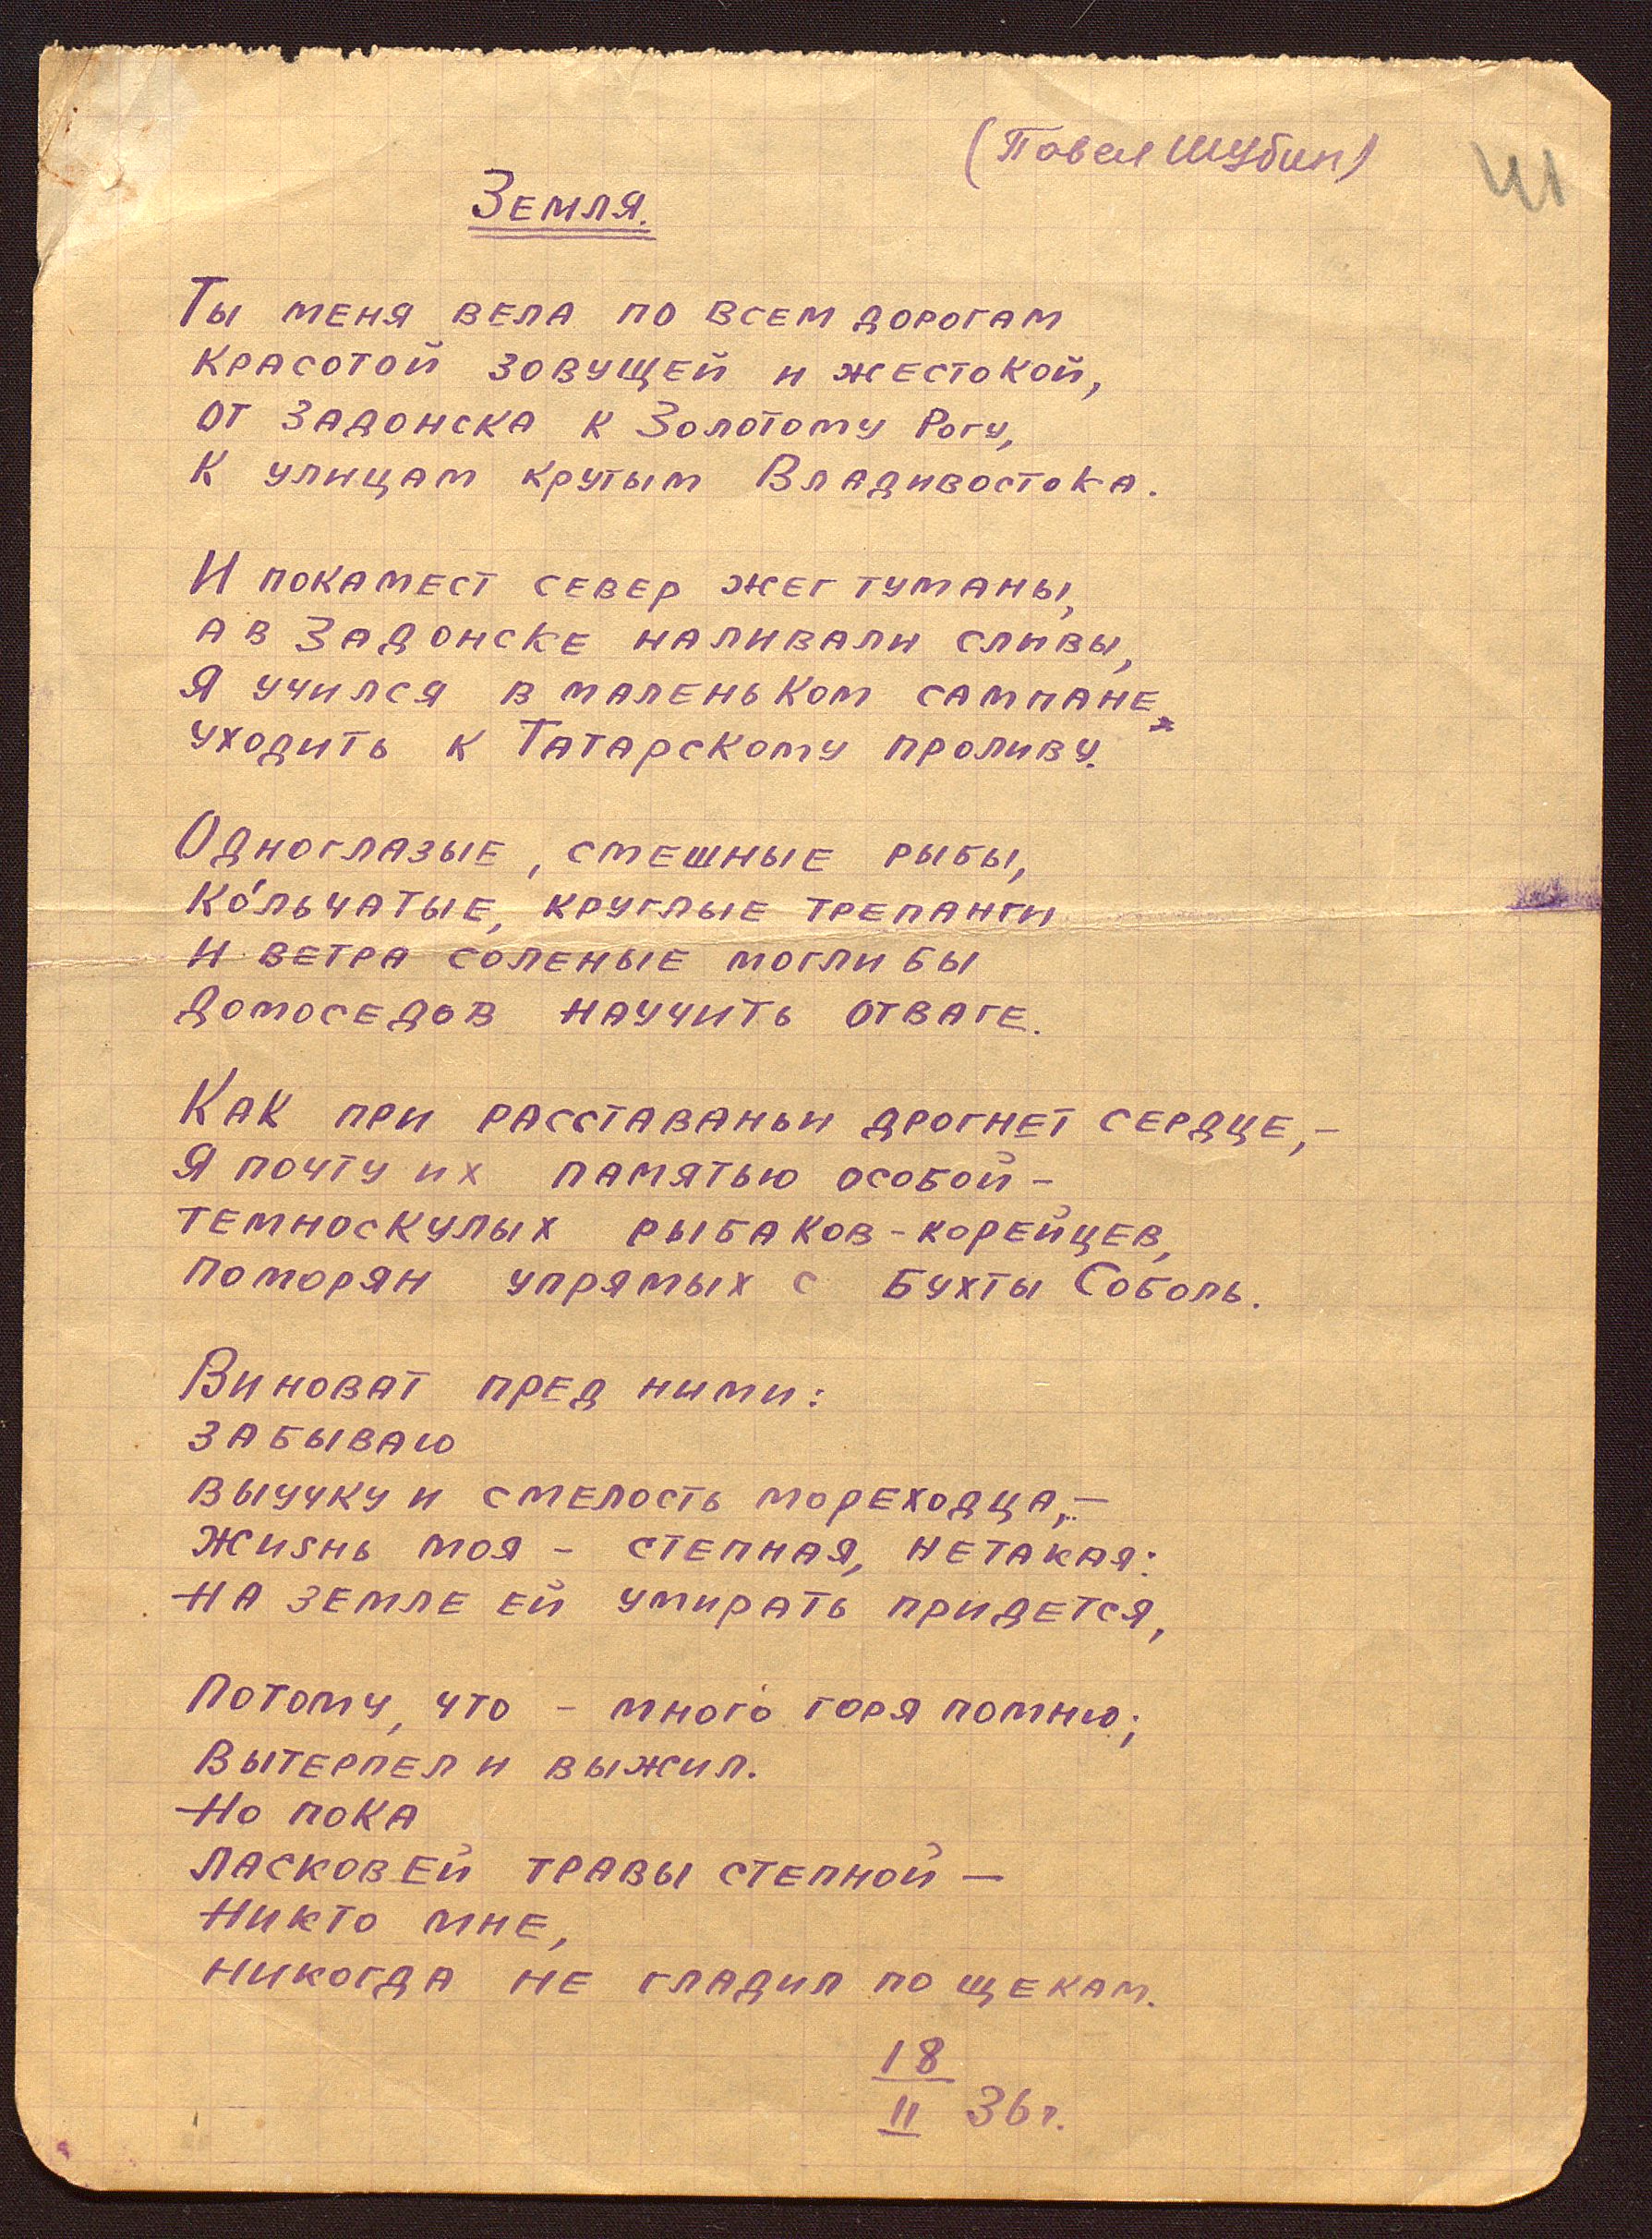 (Павел Шубин)
41
Земля.
Ты меня вела по всем дорогам
красотой зовущей и жестокой,
от Задонска к Золотому Рогу,
к улицам крутым Владивостока.
И покамест север жег туманы,
а в Задонске наливали сливы,
Я учился в маленьком сампане
уходить к Татарскому проливу.
Одноглазые, смешные рыбы,
ко́льчатые, круглые трепанги
и ветра соленые могли бы
домоседов научить отваге.
Как при расставаньи дрогнет сердце,–
Я почту их памятью особой–
темноскулых рыбаков-корейцев,
поморян упрямых с бухты Соболь.
Виноват пред ними:
забываю
выучку и смелость мореходца,–
жизнь моя – степная, нетакая:
на земле ей умирать придется,
Потому, что – много горя помню;
Вытерпел и выжил.
Но пока
ласковей травы степной –
Никто мне,
никогда не гладил по щекам.
18
II 36г.